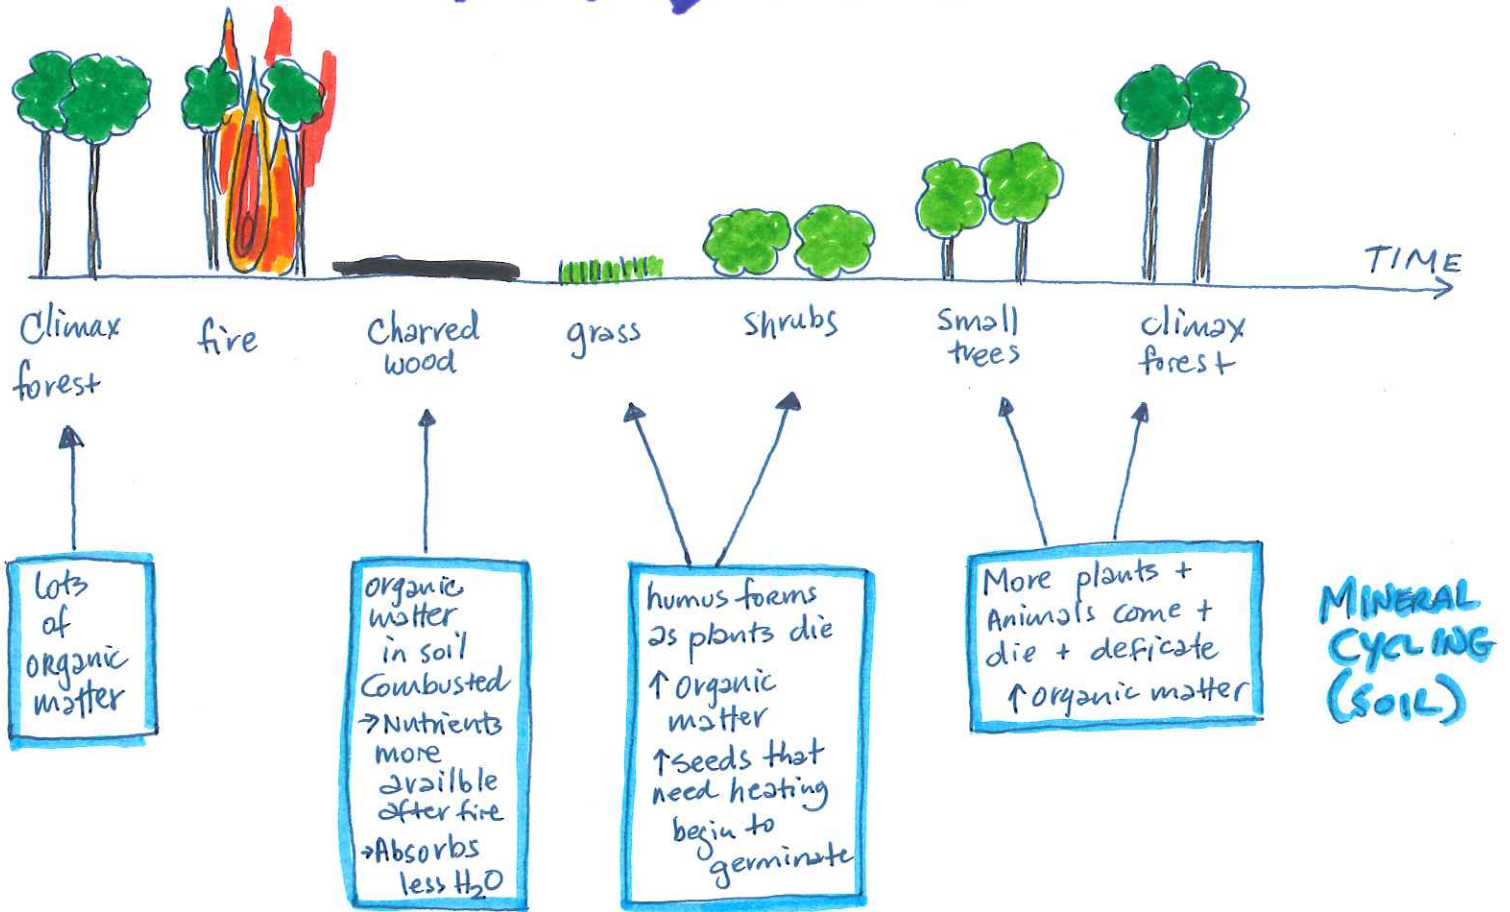 TIME
Climax
forest
fire
Charred
wood
grass
shrubs
Small
trees
climax
forest
lots
of
organic
matter
organic
matter
in soil
Combusted
→Nutrients
more
availble
after fire
→Absorbs
less H₂O
humus forms
as plants die
↑ organic
matter
↑seeds that
need heating
begin to
germinate
More plants +
Animals come +
die + deficate
↑ organic matter
MINERAL
CYCLING
(SOIL)